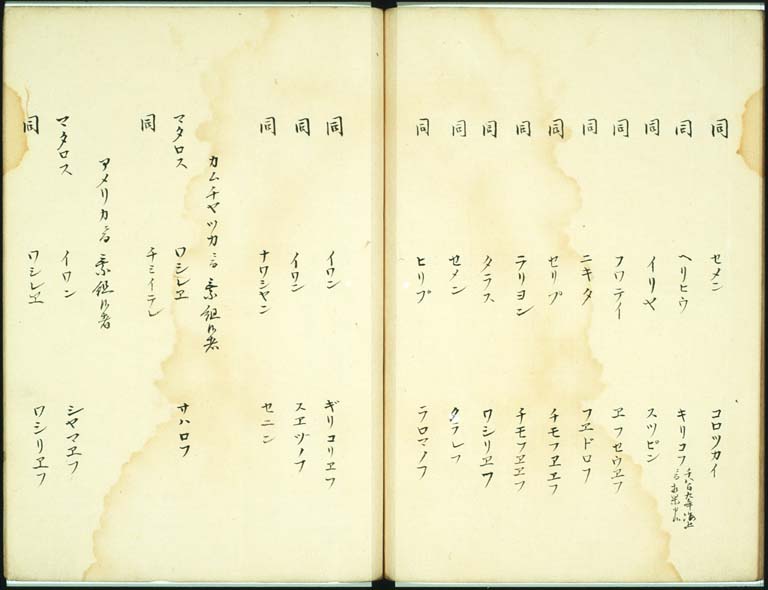 同 セメン コロツカイ
同 ヘリヒウ キリコフ
同 イリヤ スツピン
同 フワテイ エフセウエフ
同 ニキタ フエドロフ
同 セリプ チモフエエフ
同 テリヨン チモフエエフ
同 タラス ワシリエフ
同 セメン タラレフ
同 ヒリプ ラロマノフ
同 イワン ギリコリエフ
同 イワン スエヅノフ
同 ナワシヤン セニン
カムチヤツカ 乗組候者
マタロス ワシレエ サハロフ
同 チミイテレ
アメリカ 乗組候者
マタロス イワン シヤマエフ
同 ワシレエ ワシリエフ